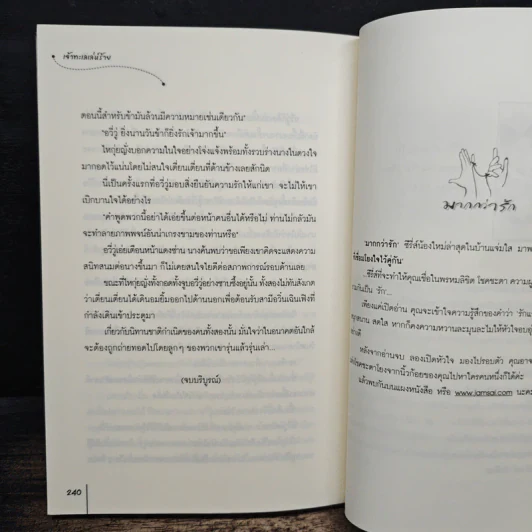 เจ้าทะเลเล่ห์ร้าย
ตอนนี้สำหรับข้ามันล้วนมีความหมายเช่นเดียวกัน"
"อวี่รู่ ยิ่งนานวันข้าก็ยิ่งรักเจ้ามากขึ้น"
ไหกุ่ยญิ่งบอกความในใจอย่างโจ่งแจ้งพร้อมทั้งรวบร่างนางในดวงใจ
มากอดไว้แน่นโดยไม่สนใจเตี่ยนเตี่ยนที่ด้านข้างเลยสักนิด
นี่เป็นครั้งแรกที่อวี่รู่มอบสิ่งยืนยันความรักให้แก่เขา จะไม่ให้เขา
เบิกบานใจได้อย่างไร
"คำพูดพวกนี้อย่าได้เอ่ยขึ้นต่อหน้าคนอื่นได้หรือไม่ ท่านไม่กลัวมัน
จะทำลายภาพพจน์อันน่าเกรงขามของท่านหรือ"
อวี่รู่เอ่ยเตือนหน้าแดงซ่าน นางค้นพบว่าขอเพียงเขาคิดจะแสดงความ
สนิทสนมต่อนางขึ้นมา ก็ไม่เคยสนใจไยดีต่อสภาพการณ์รอบด้านเลย
ขณะที่ไหกุ่ยญิ่งทั้งกอดทั้งจูบอวี่รู่อย่างซาบซึ้งอยู่นั้น ก็ยังไม่ทันสังเกต
ว่าเตี่ยนเตี่ยนได้เดินอมยิ้มออกไปด้านนอกเพื่อต้อนรับสามีอวิ๋นเฉินเฟิงที่
กำลังเดินเข้าประตูมา
เกี่ยวกับนิทานชาติกำเนิดของคนทั้งสองนั้น มั่นใจว่าในอนาคตอันใกล้
จะต้องถูกถ่ายทอดไปโดยลูกๆ ของพวกเขารุ่นแล้วรุ่นเล่า...
(จบบริบูรณ์)
240
มากกว่ารัก
มากกว่ารัก' ซีรี่ส์น้องใหม่ล่าสุดในบ้านแจ่มใส
ที่โยงใจไว้คู่กัน'
...ซีรี่ส์ที่จะทำให้คุณเชื่อในพรหมลิขิต โชคชะตา
เป็น รัก...
เพียงแค่เปิดอ่าน คุณจะเข้าใจความรู้สึกของคำว่า
สนุกสนาน สดใส หากก็คงความหวานละมุนละไมให้หัวใจอบอุ่น
หลังจากอ่านจบ ลองเปิดหัวใจ มองไปรอบตัว
โยงจากนิ้วก้อยของคุณไปหาใครคนหนึ่งก็ได้ค่ะ
แล้วพบกันบนแผงหนังสือ หรือ www.jamsai.com